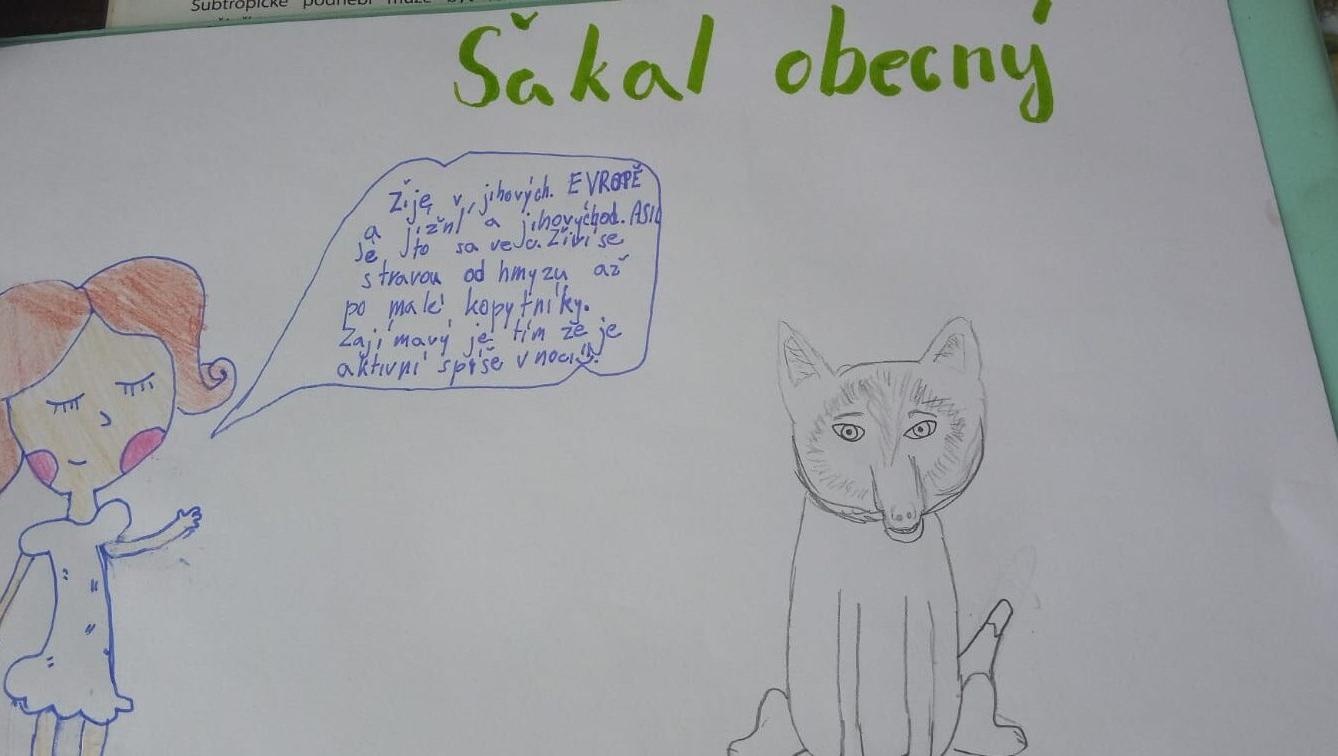 Subtropické podnebí může
Šakal obecný
Žije v jihových. EVROPĚ
a jižní a jihovýchod. ASII
je to savec. Živí se
stravou od hmyzu až
po malé kopytníky.
Zajímavý je tím že je
aktivní spíše v noci!!!